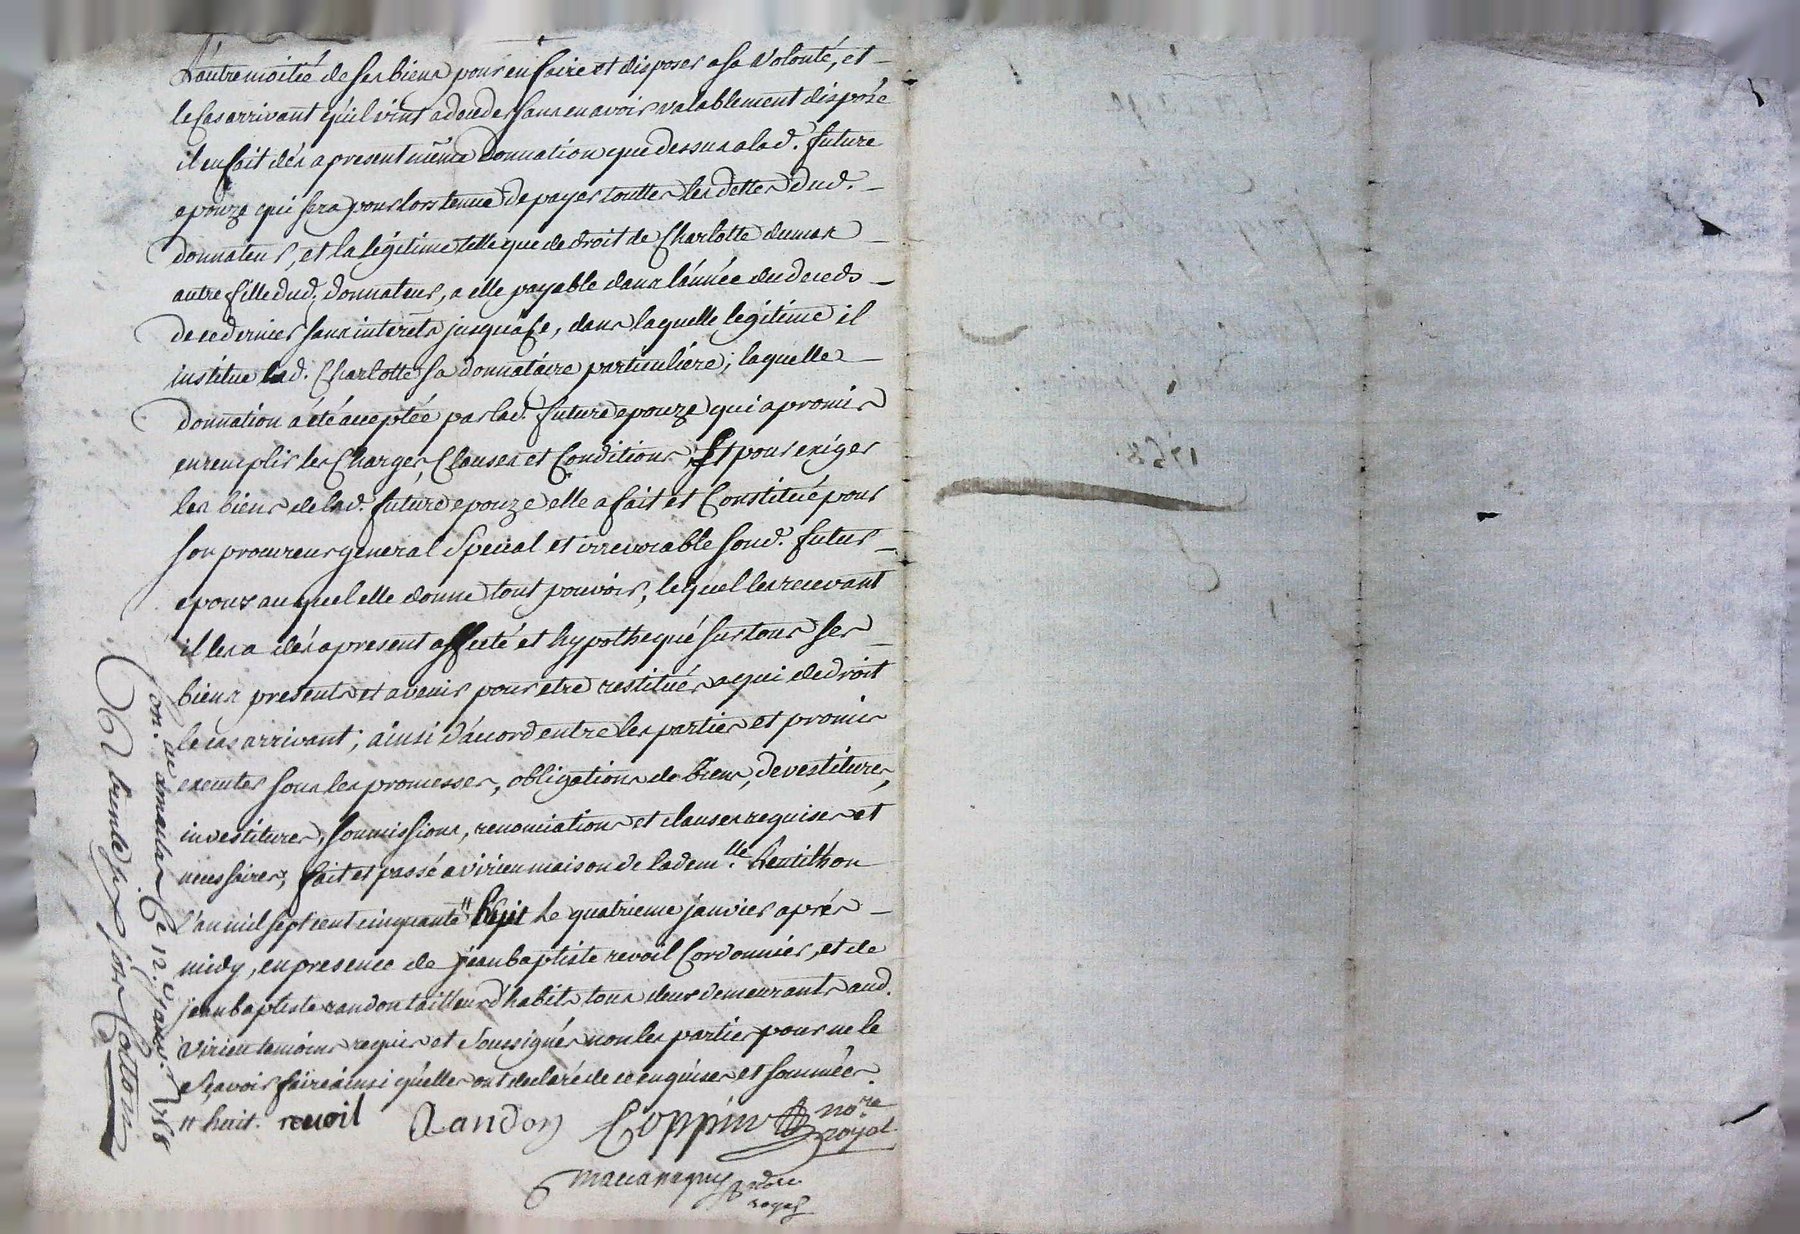 L'autre moitié de ses biens pour en faire et disposer a sa volonté, et
le cas arrivant qu'il vint a deceder sans en avoir valablement disposé
il en fait dés a present même donnation que dessus a lad. future
epouze qui sera pour lors tenue de payer touttes les dettes dud.
donnateur, et la légitime telle que de droit de Charlotte dumas
autre fille dud. donnateur, a elle payable dans l'année du deceds
de ce dernier sans interets jusqu'a ce, dans laquelle légitime il
institue lad. Charlotte sa donnataire particuliére; laquelle
donnation a été acceptée par lad. future epouze qui a promis
en remplir les Charges, Clauses et Conditions, Et pour exiger
les biens de lad. future epouze elle a fait et Constitué pour
son procureur general Special et irrevocable sond. futur
epoux auquel elle donne tout pouvoir, lequel les recevant
il les a dés a present affecté et hypothequé sur tous ses
biens presents et avenir pour etre restitués a qui de droit
le cas arrivant; ainsi d'acord entre les parties et promis
executer sous les promesses, obligations de biens, devestitures,
investitures, soumissions, renonciations et clauses requises et
necessaires; fait et passé a virieu maison de la dem.lle
l'an mil sept cent cinquante " le quatrieme janvier aprés
midy, en presence de jean baptiste revoil Cordonnier, et de
jean baptiste randon tailleur d'habits tous deux demeurants aud.
Virieu temoins requis et soussignés non les parties pour ne le
sçavoir faire ainsi qu'elles ont declaré de ce enquises et sommées.
" huit. revoil Randon Coppin no.re
royal
Con. ... Ce 12. Janvier 1758